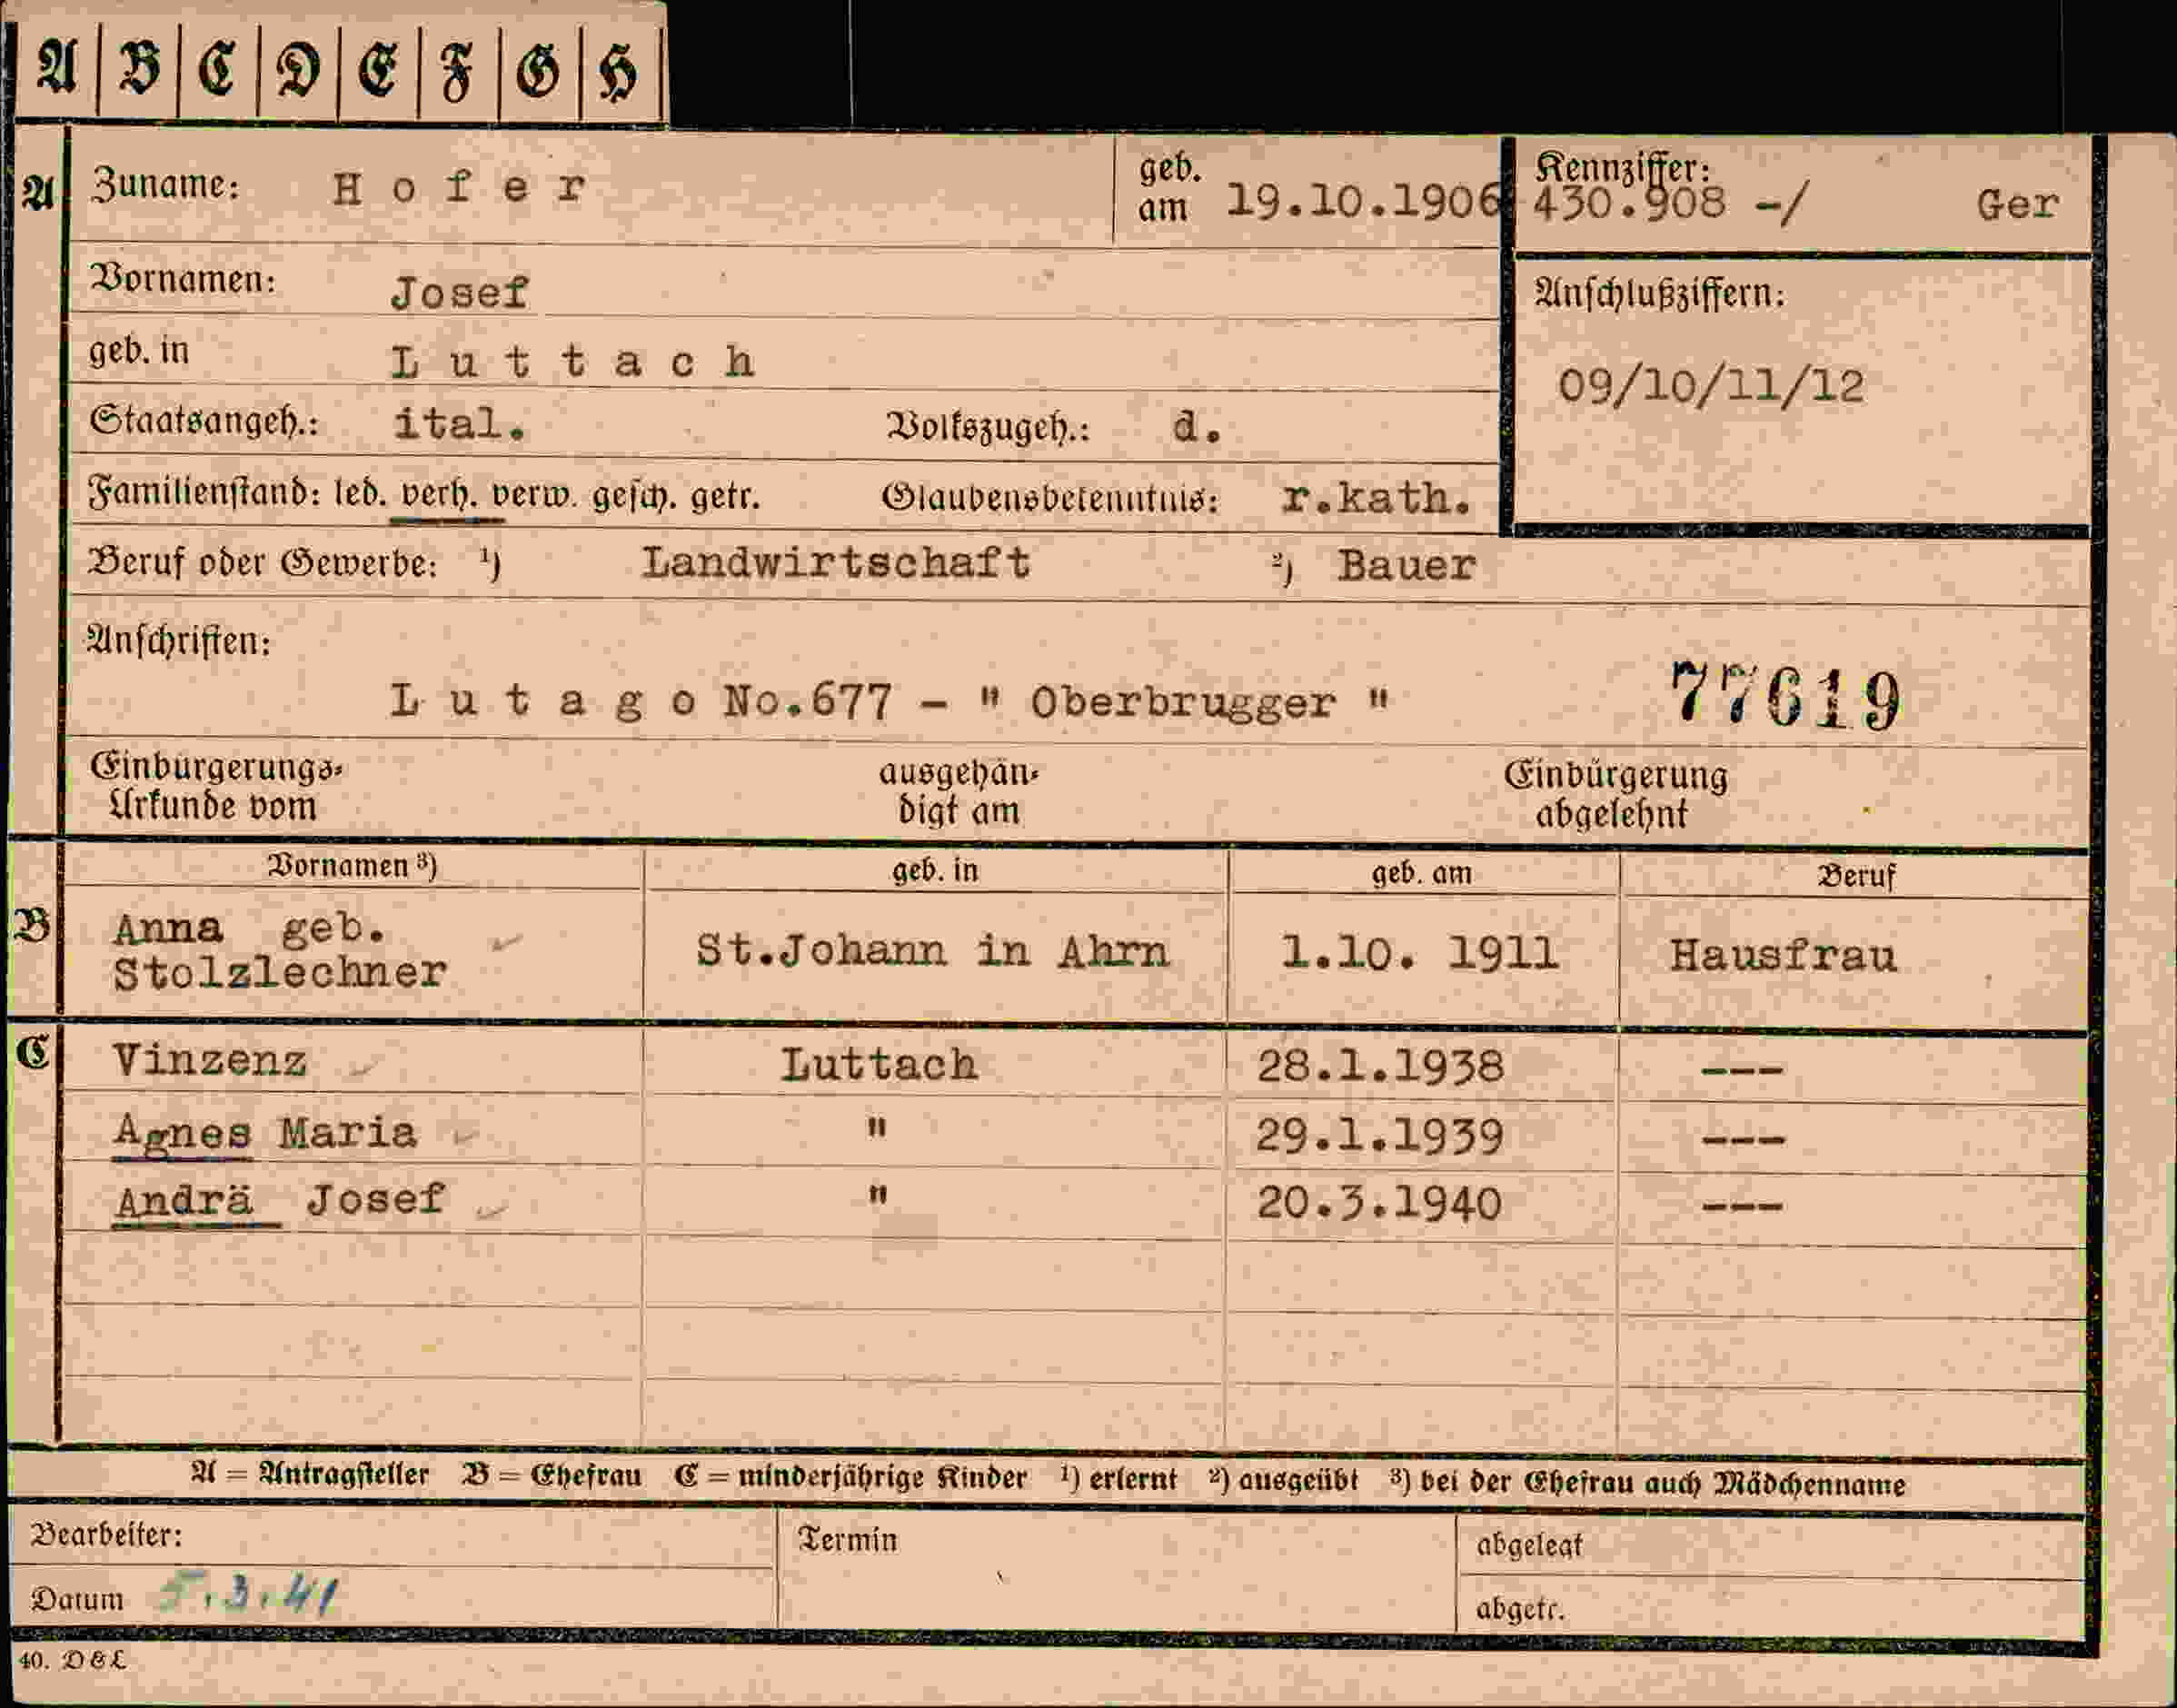 A B C D E F G H
A Zuname: Hofer geb. am 19.10.1906 Kennziffer: 430.908 -/ Ger
Vornamen: Josef
Anschlußziffern:
geb. in Luttach
09/10/11/12
Staatsangeh.: ital. Volkszugeh.: d.
Familienstand: led. verh. verw. gesch. getr. Glaubensbekenntnis: r.kath.
Beruf oder Gewerbe: ¹) Landwirtschaft ²) Bauer
Anschriften:
Lutago No.677 - " Oberbrugger " 77619
Einbürgerungs- ausgehän- Einbürgerung
Urkunde vom digt am abgelehnt
Vornamen ³) geb. in geb. am Beruf
B Anna geb.
Stolzlechner St.Johann in Ahrn 1.10. 1911 Hausfrau
C Vinzenz Luttach 28.1.1938 ---
Agnes Maria " 29.1.1939 ---
Andrä Josef " 20.3.1940 ---
A = Antragsteller B = Ehefrau C = minderjährige Kinder ¹) erlernt ²) ausgeübt ³) bei der Ehefrau auch Mädchenname
Bearbeiter: Termin abgelegt
Datum 5.3.41 abgetr.
40. D&L